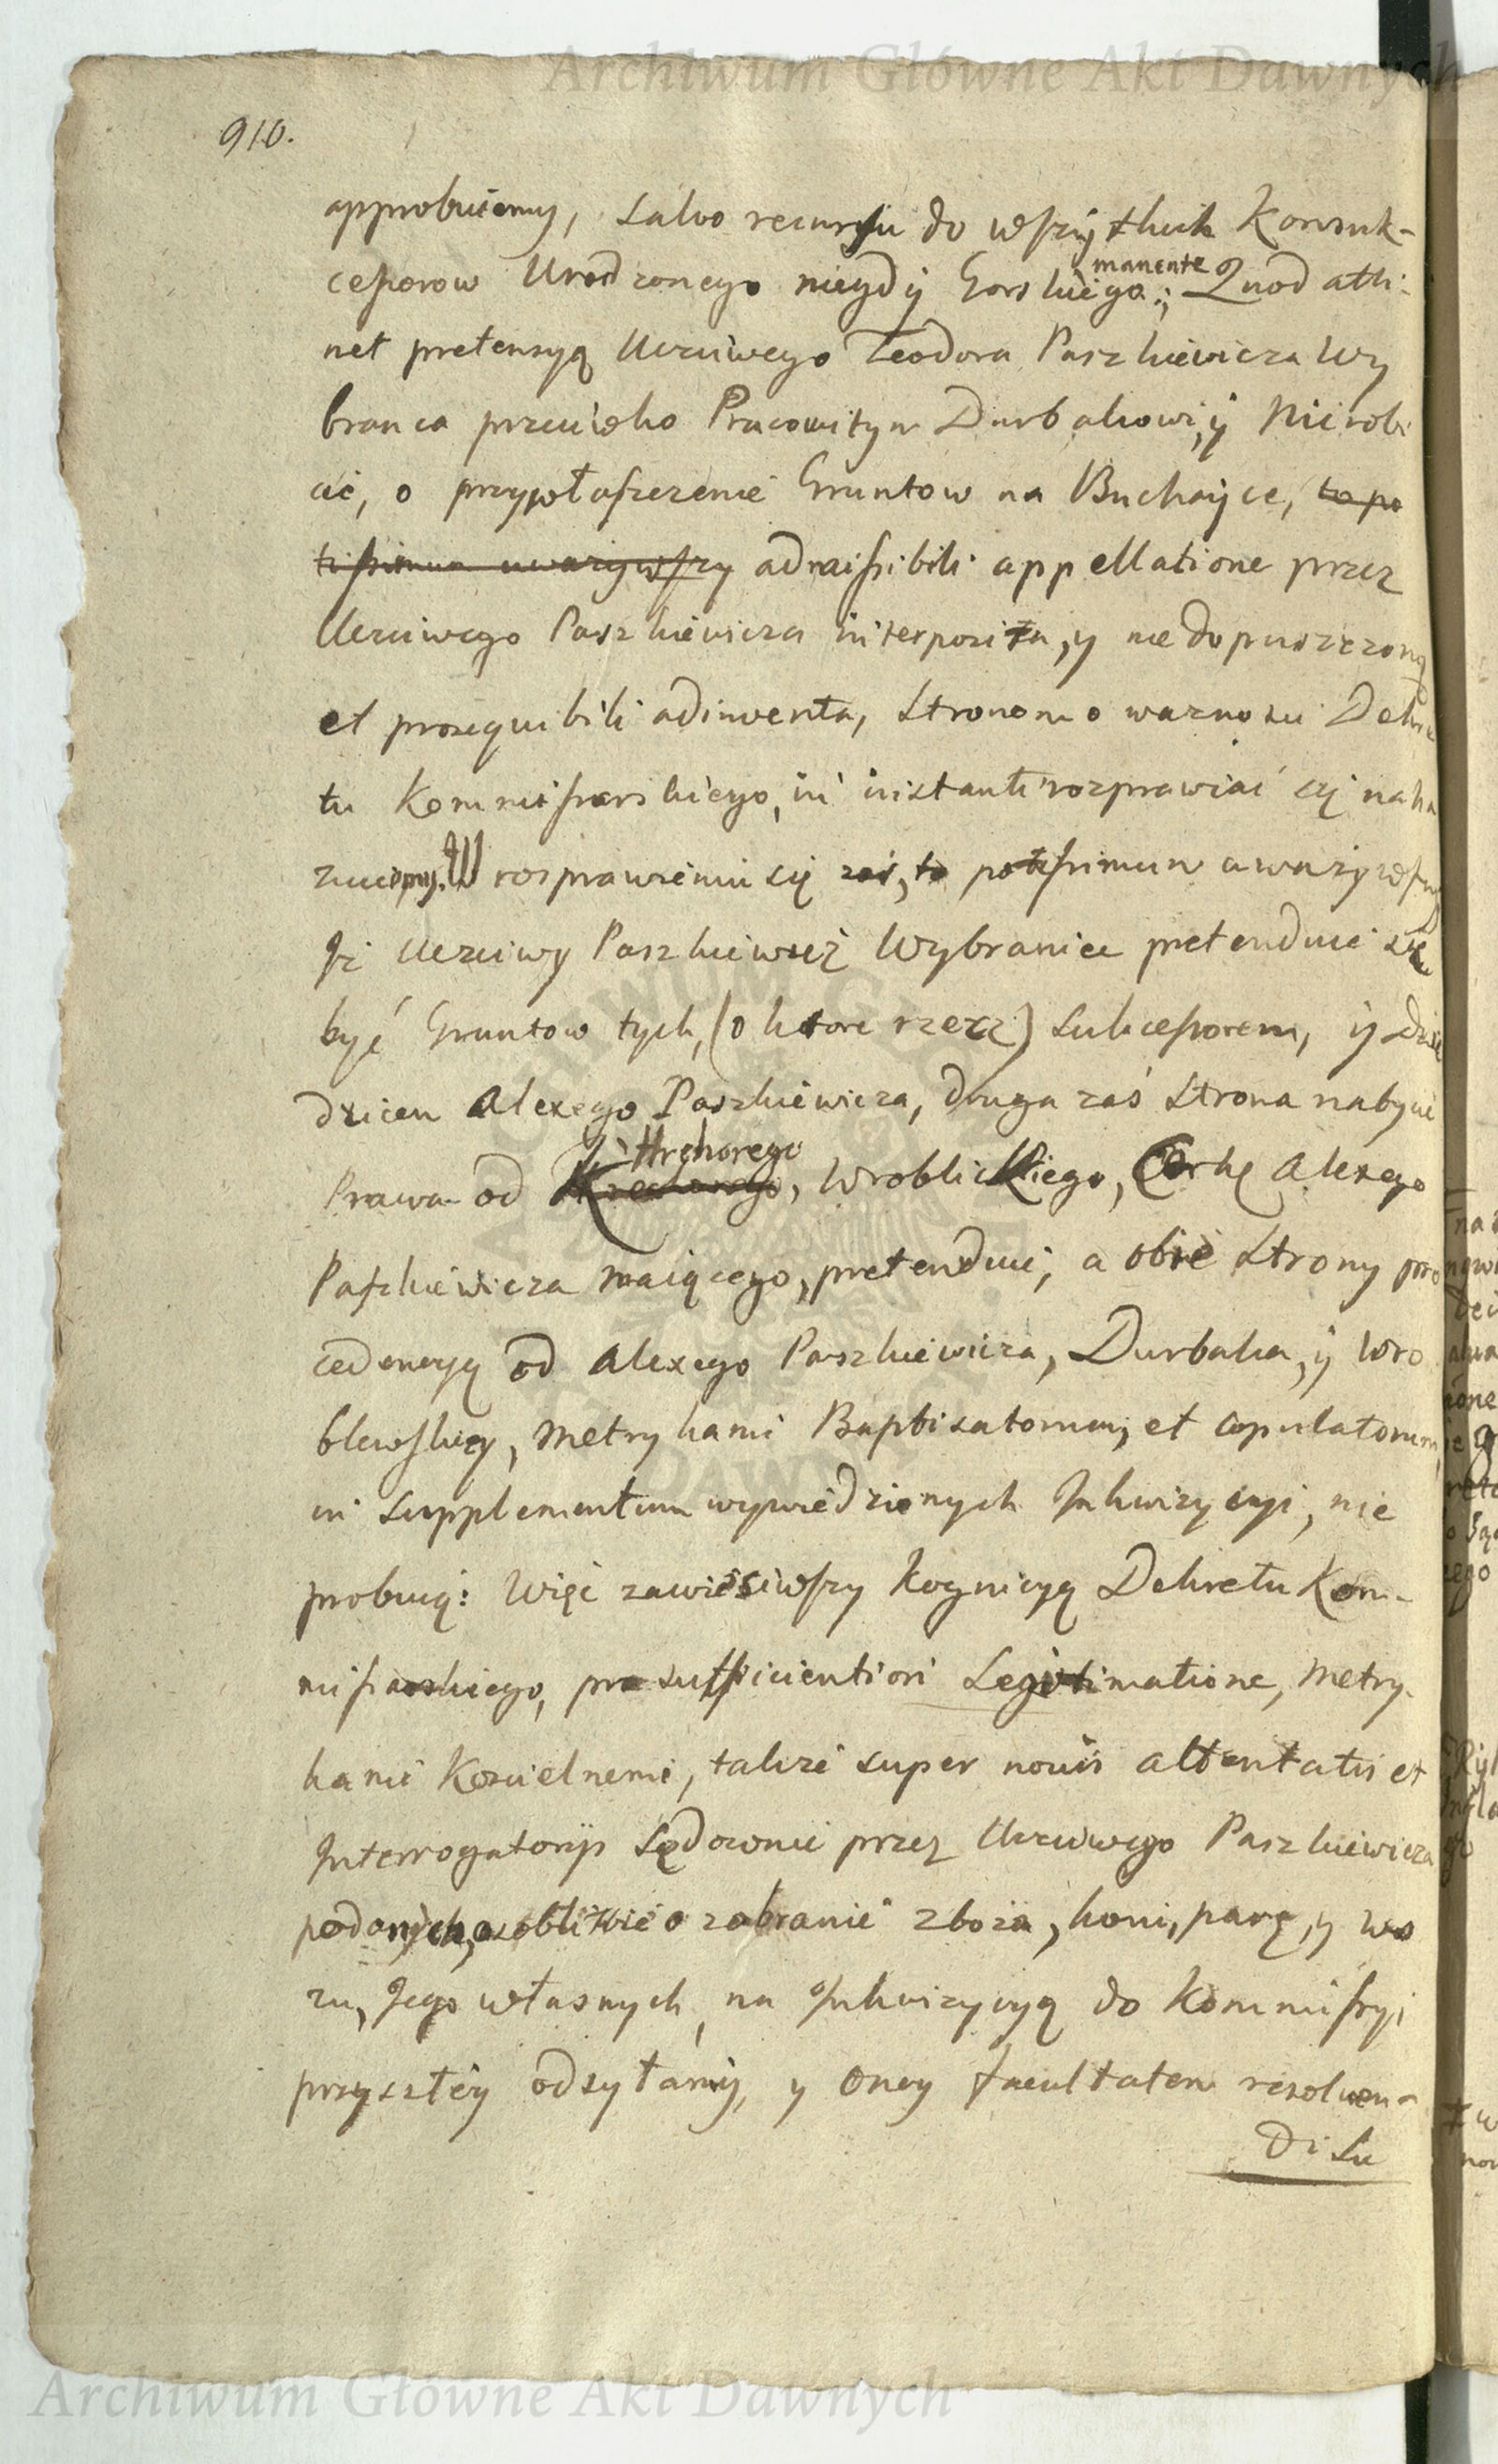 Archiwum Główne Akt Dawnych
910.
approbuiemy, salvo recursu do wszytkich Konsuk-
cessorow Urodzonego niegdy Gorskiego manente; Quod atti-
net pretensyą Uczciwego Teodora Paszkiewicza Wy
branca przeciwko Pracowitym Durbakowi, y Nierobi
cie, o przywłaszczenie Gruntow na Buchayce, to po
tissimum uwazywszy admissibili appellatione przez
Uczciwego Paszkiewicza interposita, y niedopuszczoną
et prosequibili adinventa, Stronom o waznosci Dekre
tu Kommissarskiego, in instanti rozprawiać się naka
zuiemy. W rozprawieniu się zaś, to potissimum uwazywszy
Iz Uczciwy Paszkiewicz Wybraniec pretenduie się
być Gruntow tych, (o ktore rzecz) Sukcessorem, y Dzie
dzicem Alexego Paszkiewicza, druga zaś Strona nabycie
Prawa od Hrehorego Wroblickiego, Corkę Alexego
Paszkiewicza maiącego, pretenduie, a obie Strony pro
cedencyą od Alexego Paszkiewicza, Durbaka, y Wro
blewskiey, Metrykami Baptisatorum, et copulatorum,
in supplementum wywiedzionych Inkwizycyi, nie
probuią: Więc zawiesiwszy Kognicyą Dekretu Kom-
missarskiego, pro sufficientiori Legitimatione, Metry-
kami Koscielnemi, takze super novis attentatis et
Interrogatoryis Sądownie przez Uczciwego Paszkiewicza
podanych, osobliwie o zabranie zboza, koni, parę, y wo
zu, Jego własnych, na Inkwizycyą do Kommissyi
przyszłey odsyłamy, y oney facultatem resolven-
di Su
Archiwum Główne Akt Dawnych